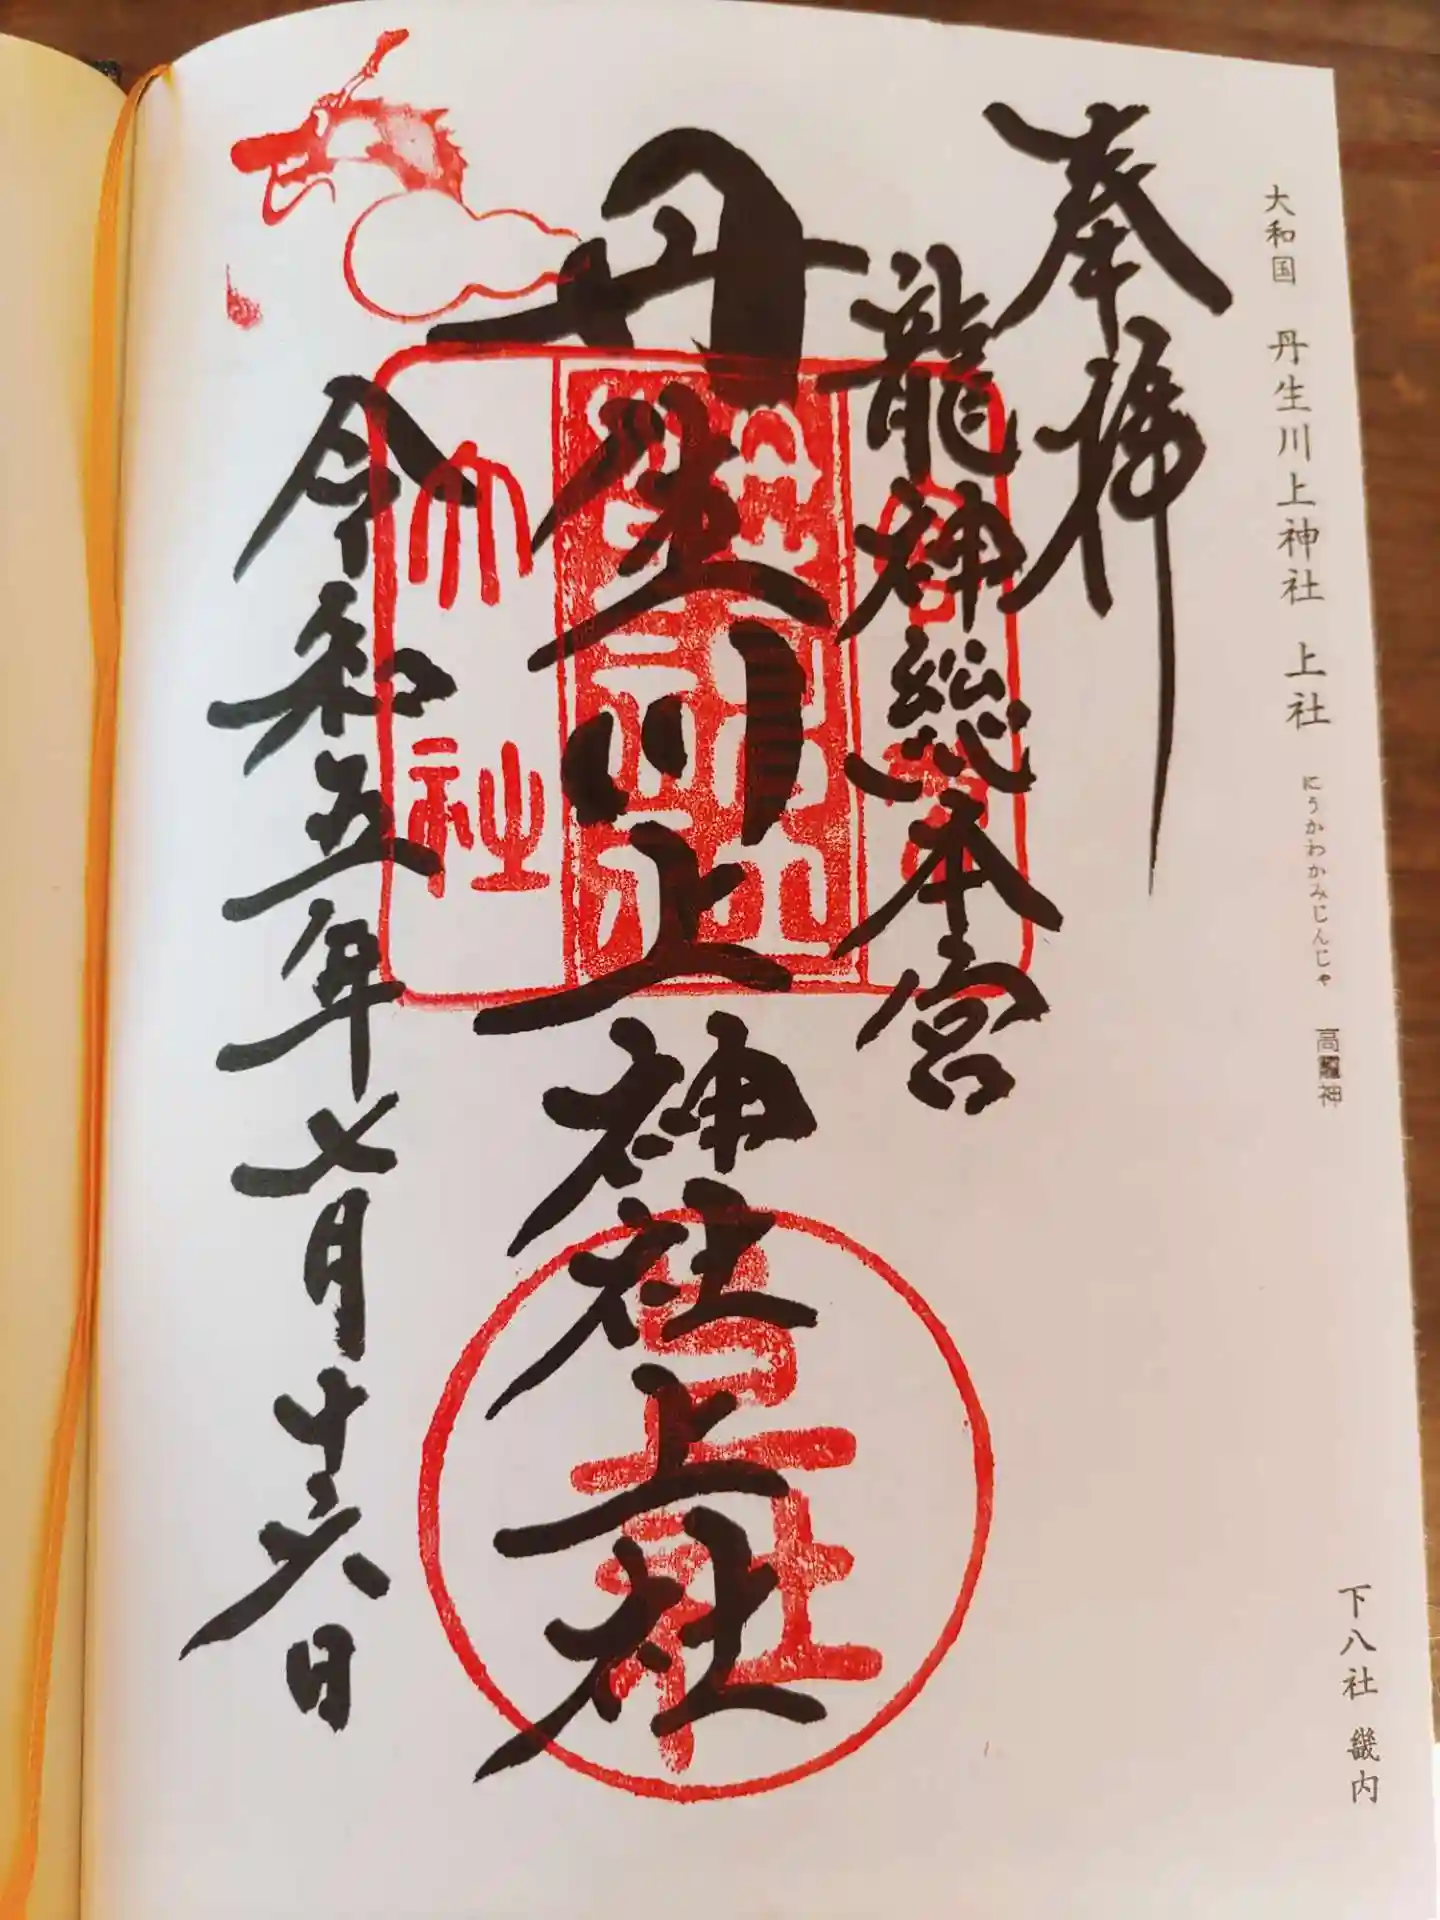 大和国 丹生川上神社 上社 にうかわかみじんじゃ 高龗神
下八社 畿内
奉拝
龍神総本宮
丹生川上神社上社
令和五年七月十六日
大社
上社